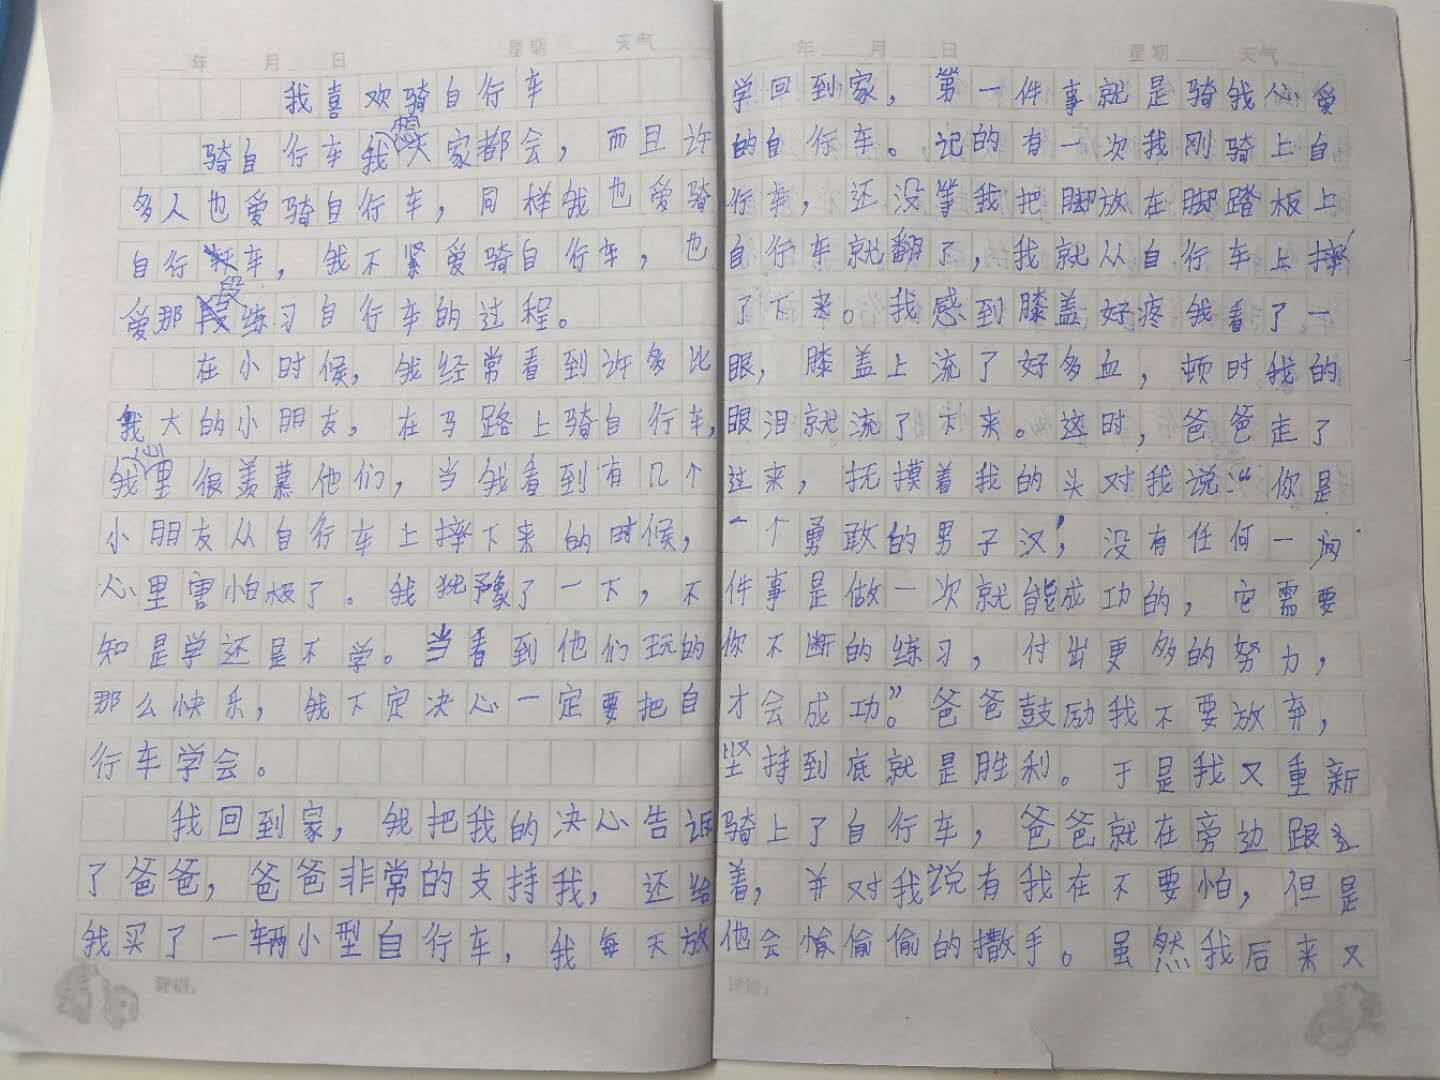 年 月 日 星期 天气
我喜欢骑自行车
骑自行车我想大家都会，而且许
多人也爱骑自行车，同样我也爱骑
自行车，我不紧爱骑自行车，也
爱那段练习自行车的过程。
在小时候，我经常看到许多比
我大的小朋友，在马路上骑自行车，
我心里很羡慕他们，当我看到有几个
小朋友从自行车上摔下来的时候，
心里害怕极了。我犹豫了一下，不
知是学还是不学。当看到他们玩的
那么快乐，我下定决心一定要把自
行车学会。
我回到家，我把我的决心告诉
了爸爸，爸爸非常的支持我，还给
我买了一辆小型自行车，我每天放
评语：
年 月 日 星期 天气
学回到家，第一件事就是骑我心爱
的自行车。记的有一次我刚骑上自
行车，还没等我把脚放在脚踏板上
自行车就翻了，我就从自行车上摔
了下来。我感到膝盖好疼我看了一
眼，膝盖上流了好多血，顿时我的
眼泪就流了下来。这时，爸爸走了
过来，抚摸着我的头对我说：“你是
一个勇敢的男子汉，没有任何一
件事是做一次就能成功的，它需要
你不断的练习，付出更多的努力，
才会成功。”爸爸鼓励我不要放弃，
坚持到底就是胜利。于是我又重新
骑上了自行车，爸爸就在旁边跟
着，并对我说有我在不要怕，但是
他会偷偷偷的撒手。虽然我后来又
评语：